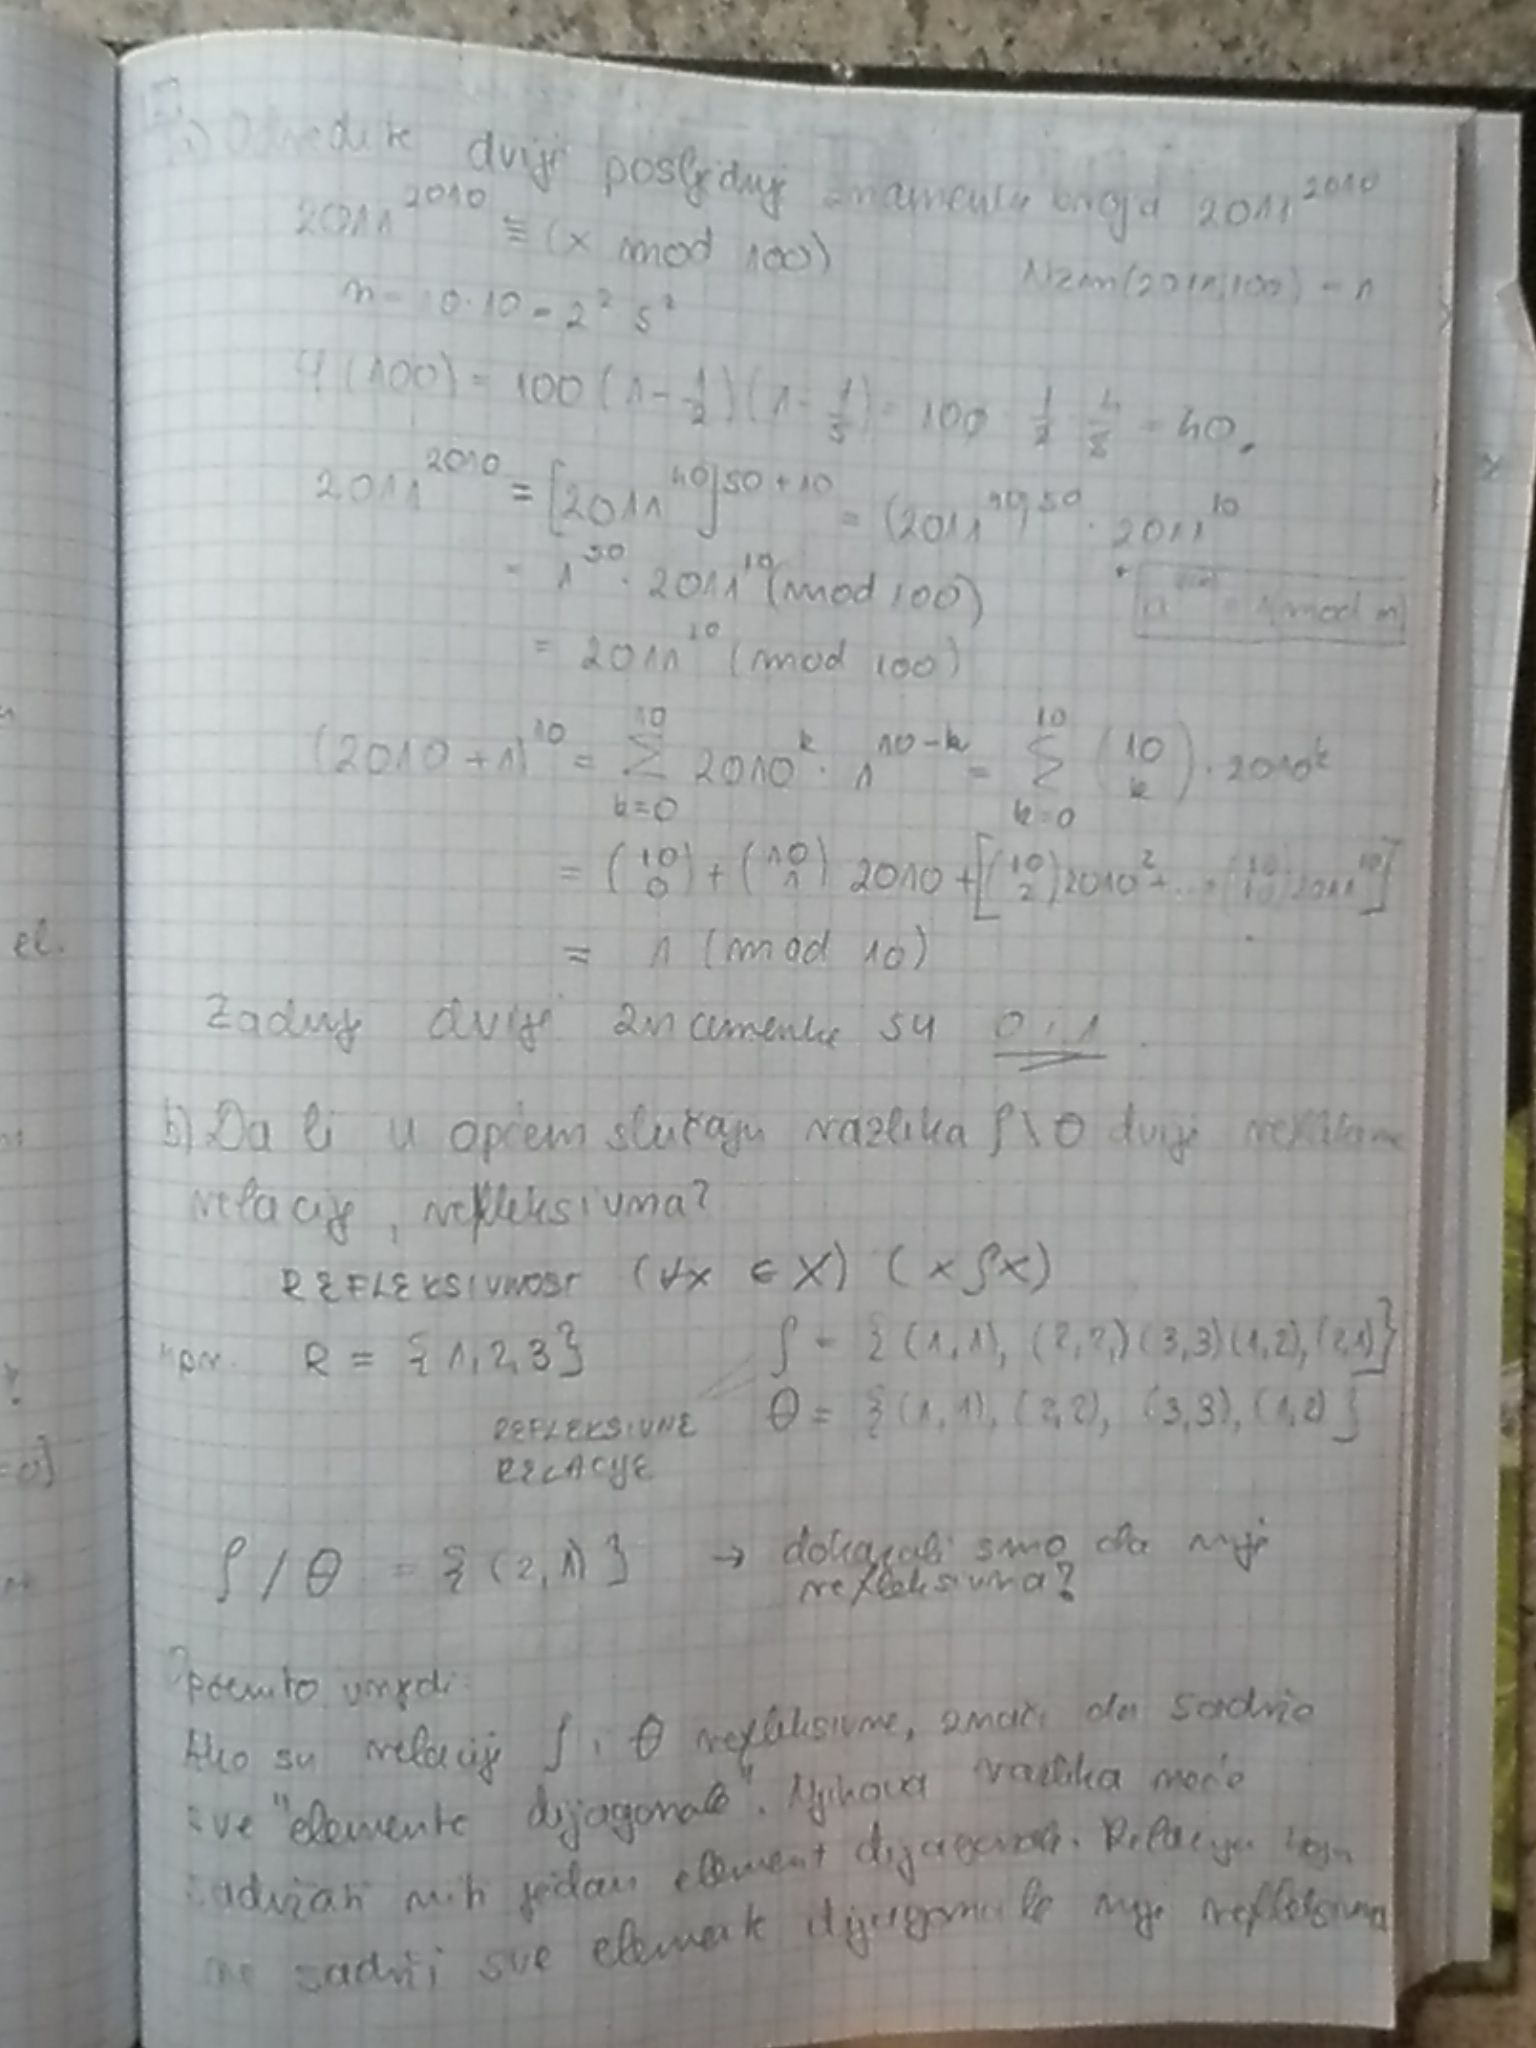 a) Odredite dvije posljednje znamenke broja 2011^2010
2011^2010 ≡ (x mod 100) Nzm(2011,100) = 1
n = 10·10 = 2² 5²
φ(100) = 100 (1-1/2)(1-1/5) = 100 1/2 4/5 = 40.
2011^2010 = [2011^40]^50+10 = (2011^40)^50 · 2011^10
= 1^50 · 2011^10 (mod 100)
= 1 (mod n)
= 2011^10 (mod 100)
(2010+1)^10 = Σ_{k=0}^{10} 2010^k · 1^{10-k} = Σ_{k=0}^{10} (10 k) · 2010^k
= (10 0) + (10 1) 2010 + [(10 2) 2010² + ... + (10 10) 2011^10]
= 1 (mod 10)
Zadnje dvije znamenke su 0 i 1.
b) Da li u općem slučaju razlika ρ\θ dvije refleksivne
relacije, refleksivna?
REFLEKSIVNOST (∀x ∈ X) (xρx)
npr. R = {1,2,3} ρ = {(1,1), (2,2,) (3,3) (1,2), (2,1)}
REFLEKSIVNE θ = {(1,1), (2,2), (3,3), (1,2)}
RELACIJE
ρ / θ = {(2,1)} → dokazali smo da nije
refleksivna?
Općenito vrijedi:
Ako su relacije ρ i θ refleksivne, znači da sadrže
sve "elemente dijagonale". Njihova razlika neće
sadržati niti jedan element dijagonale. Relacija koja
ne sadrži sve elemente dijagonale nije refleksivna
el.